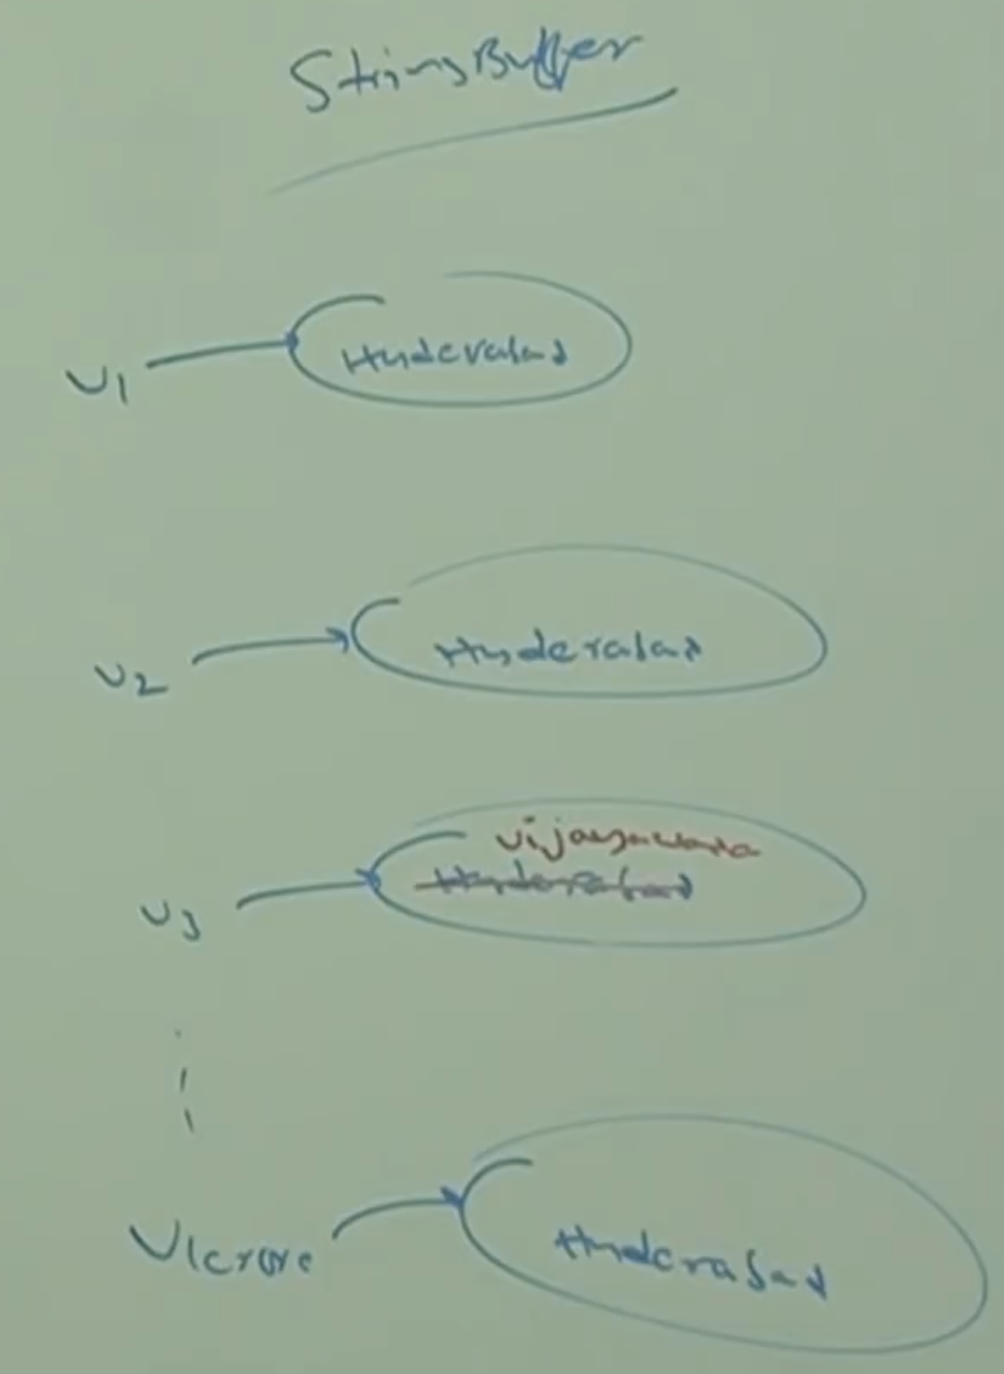 StringBuffer
V1
Hyderabad
V2
Hyderabad
V3
Vijayawada
Hyderabad
V1crore
Hyderabad